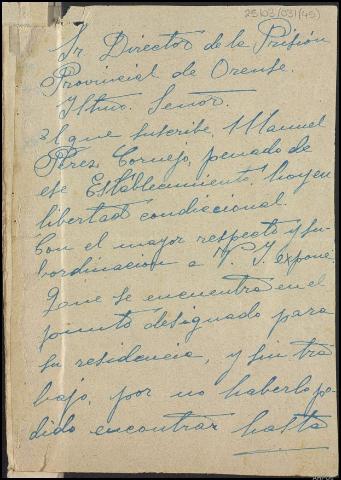 25/03/031(45)
Sr Director de la Prisión
Provincial de Orense.
Iltmo. Señor.
El que suscribe, Manuel
Pérez Cornejo, penado de
ese Establecimiento, hoy en
libertad condicional.
Con el mayor respeto y su-
bordinacion a V. I. expone:
Que se encuentra en el
punto designado para
su residencia, y sin tra
bajo, por no haberlo po-
dido encontrar hasta